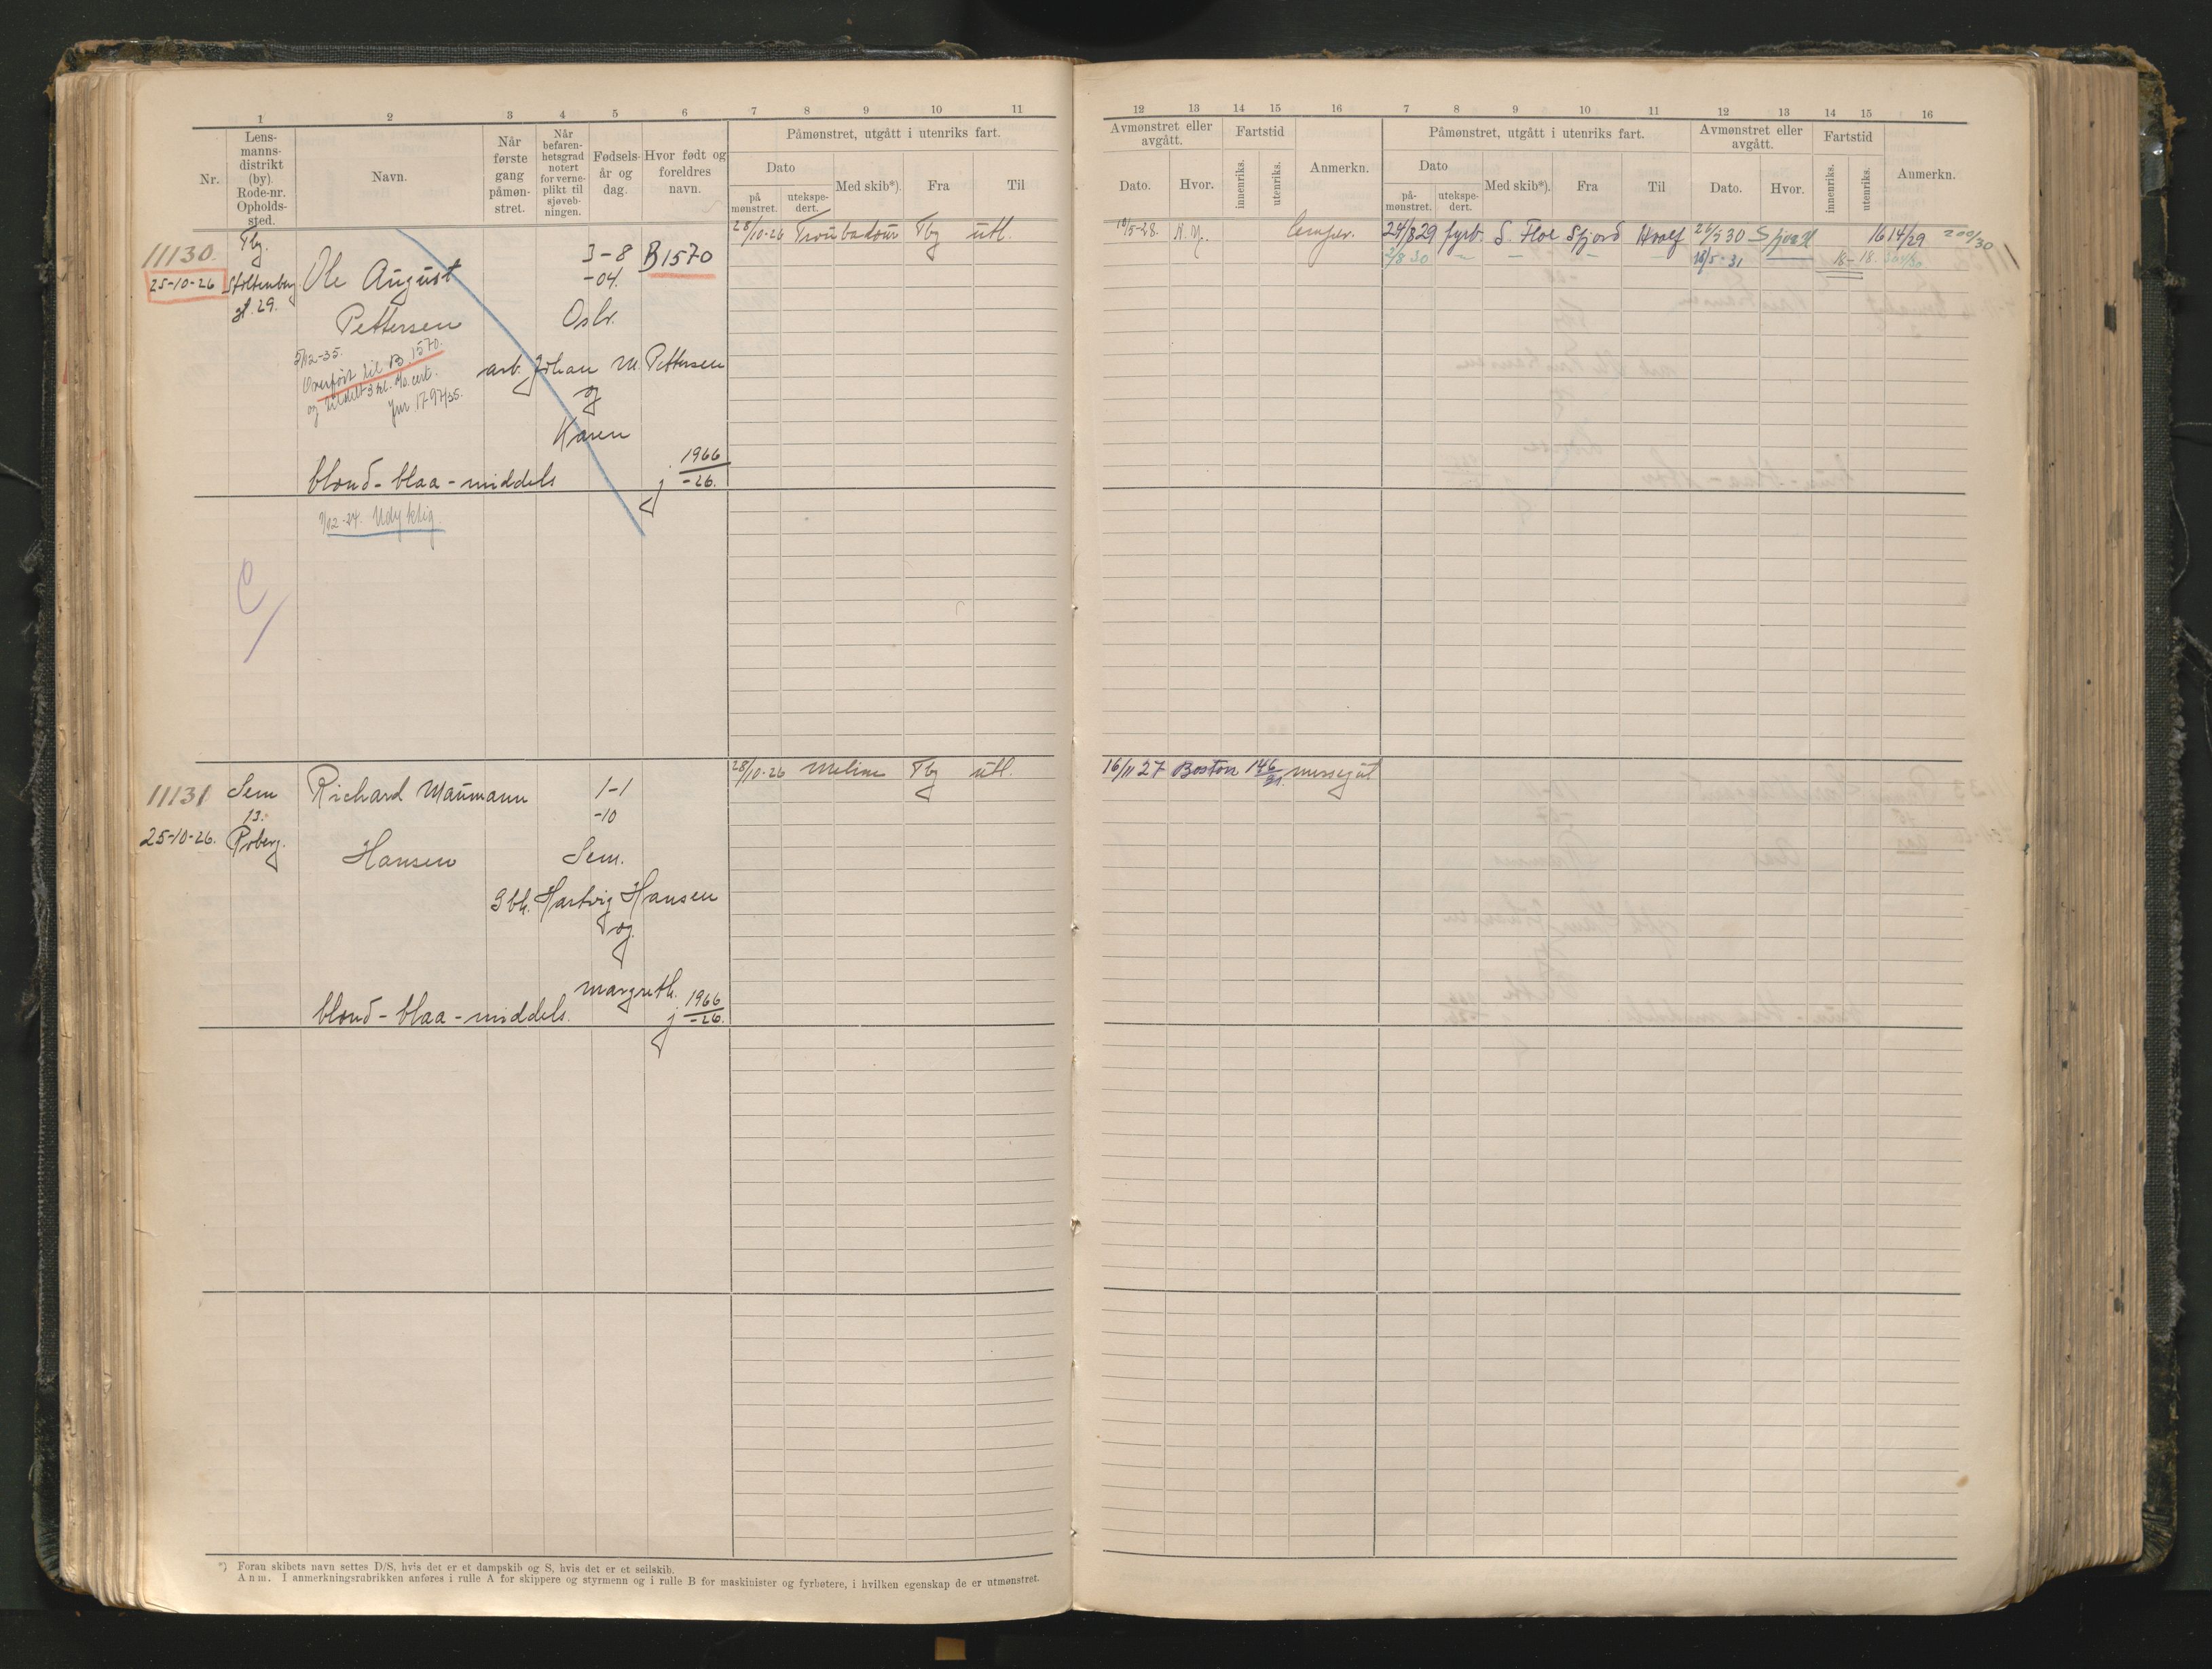 1 2 3 4 5 6 7 8 9 10 11
Nr.
Lens-
manns-
distrikt
(by).
Rode-nr.
Opholds-
sted.
Navn.
Når
første
gang
påmøn-
stret.
Når
befaren-
hetsgrad
notert
for verne-
plikt til
sjøveb-
ningen.
Fødsels-
år og
dag.
Hvor født og
foreldres
navn.
Påmønstret, utgått i utenriks fart.
Dato
på
mønstret.
utekspe-
dert.
Med skib*).
Fra
Til
11130.
25-10-26
Tbg.
Stoltenberg
gt. 29.
Ole August
Pettersen
3-8
-04.
B1570
Oslo.
arb. Johan M. Pettersen
og
Karen
5/12-35.
Overført til B 1570.
og tildelt 3 kl. cert.
Jnr. 1797/35.
blond - blaa - middels
j. 1966
-26.
28/10-26 Troubadour Tbg utl.
Udyktig.
11131
25-10-26.
Sem
13.
Roberg.
Richard Maumann
Hansen
1-1
-10
Sem.
Gbr. Hartvig Hansen
og
Margreth.
blond - blaa - middels.
j 1966
-26.
28/10-26 Meline Tbg utl.
*) Foran skibets navn settes D/S, hvis det er et dampskib og S, hvis det er et seilskib.
Anm. I anmerkningsrubrikken anføres i rulle A for skippere og styrmenn og i rulle B for maskinister og fyrbøtere, i hvilken egenskap de er utmønstret.
12 13 14 15 16 7 8 9 10 11 12 13 14 15 16
Avmønstret eller
avgått.
Dato.
Hvor.
Fartstid
innenriks.
utenriks.
Anmerkn.
Påmønstret, utgått i utenriks fart.
Dato
på-
mønstret.
utekspe-
dert.
Med skib*).
Fra
Til
Avmønstret eller
avgått.
Dato.
Hvor.
Fartstid
innenriks.
utenriks.
Anmerkn.
18/5-28. N.Y. lemper. 24/8 29 fyrb. S. Floe Sfjord Hvalf 1614/29 200/30
2/8 30 18/5-31 18 - 18.
16/11 27 Boston messegut